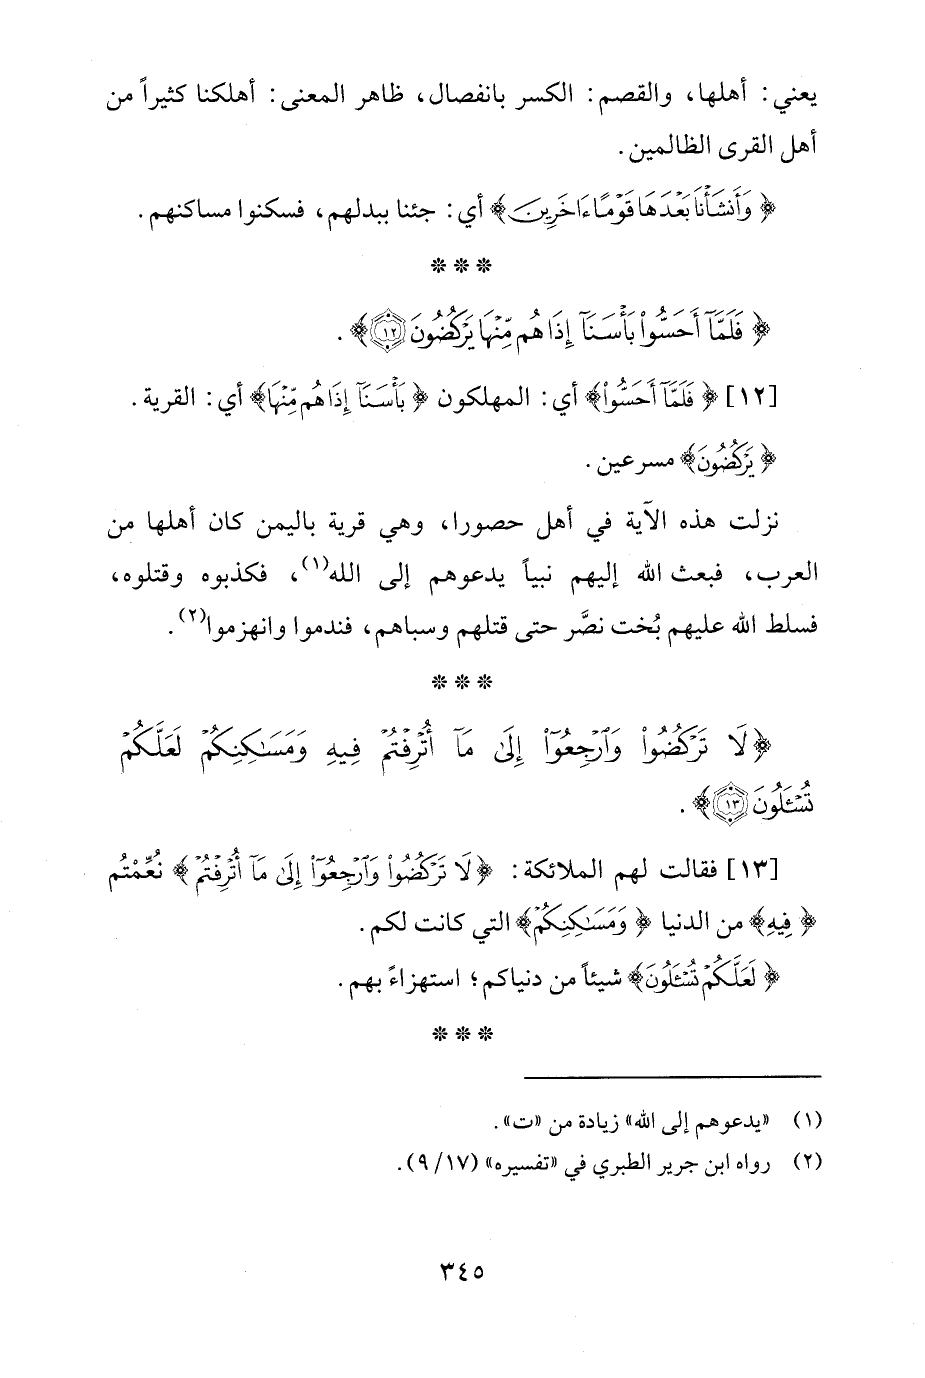 يعني: أهلها، والقصم: الكسر بانفصال، ظاهر المعنى: أهلكنا كثيراً من
أهل القرى الظالمين.
﴿ وَأَنشَأْنَا بَعْدَهَا قَوْمًا ءَاخَرِينَ ﴾ أي: جئنا ببدلهم، فسكنوا مساكنهم.
❊ ❊ ❊
﴿ فَلَمَّآ أَحَسُّوا۟ بَأْسَنَآ إِذَا هُم مِّنْهَا يَرْكُضُونَ ١٢ ﴾.
[١٢] ﴿ فَلَمَّآ أَحَسُّوا۟ ﴾ أي: المهلكون ﴿ بَأْسَنَآ إِذَا هُم مِّنْهَا ﴾ أي: القرية.
﴿ يَرْكُضُونَ ﴾ مسرعين.
نزلت هذه الآية في أهل حصورا، وهي قرية باليمن كان أهلها من
العرب، فبعث الله إليهم نبياً يدعوهم إلى الله(١)، فكذبوه وقتلوه،
فسلط الله عليهم بُخت نصَّر حتى قتلهم وسباهم، فندموا وانهزموا(٢).
❊ ❊ ❊
﴿ لَا تَرْكُضُوا۟ وَٱرْجِعُوٓا۟ إِلَىٰ مَآ أُتْرِفْتُمْ فِيهِ وَمَسَٰكِنِكُمْ لَعَلَّكُمْ
تُسْـَٔلُونَ ١٣ ﴾.
[١٣] فقالت لهم الملائكة: ﴿ لَا تَرْكُضُوا۟ وَٱرْجِعُوٓا۟ إِلَىٰ مَآ أُتْرِفْتُمْ ﴾ نُعِّمْتُم
﴿ فِيهِ ﴾ من الدنيا ﴿ وَمَسَٰكِنِكُمْ ﴾ التي كانت لكم.
﴿ لَعَلَّكُمْ تُسْـَٔلُونَ ﴾ شيئاً من دنياكم؛ استهزاءً بهم.
❊ ❊ ❊
(١) «يدعوهم إلى الله» زيادة من «ت».
(٢) رواه ابن جرير الطبري في «تفسيره» (١٧/ ٩).
٣٤٥